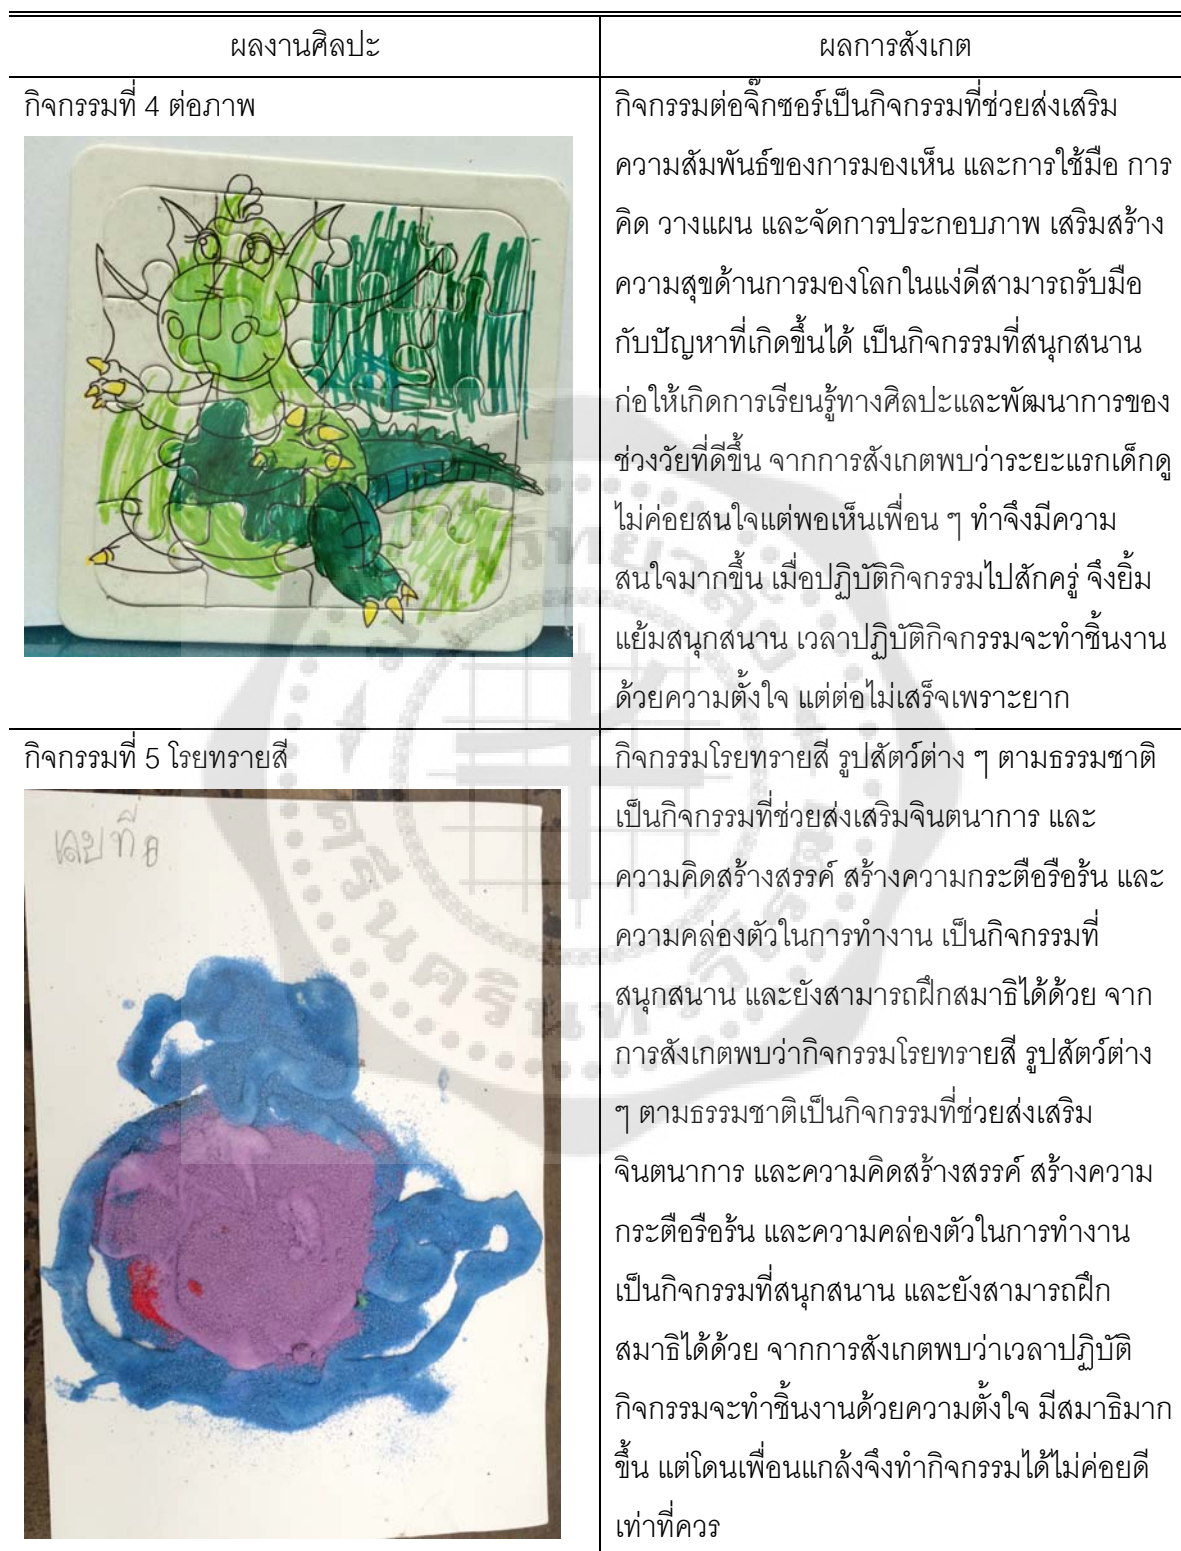 ผลงานศิลปะ
ผลการสังเกต
กิจกรรมที่ 4 ต่อภาพ
กิจกรรมต่อจิ๊กซอร์เป็นกิจกรรมที่ช่วยส่งเสริม
ความสัมพันธ์ของการมองเห็น และการใช้มือ การ
คิด วางแผน และจัดการประกอบภาพ เสริมสร้าง
ความสุขด้านการมองโลกในแง่ดีสามารถรับมือ
กับปัญหาที่เกิดขึ้นได้ เป็นกิจกรรมที่สนุกสนาน
ก่อให้เกิดการเรียนรู้ทางศิลปะและพัฒนาการของ
ช่วงวัยที่ดีขึ้น จากการสังเกตพบว่าระยะแรกเด็กดู
ไม่ค่อยสนใจแต่พอเห็นเพื่อน ๆ ทำจึงมีความ
สนใจมากขึ้น เมื่อปฏิบัติกิจกรรมไปสักครู่ จึงยิ้ม
แย้มสนุกสนาน เวลาปฏิบัติกิจกรรมจะทำชิ้นงาน
ด้วยความตั้งใจ แต่ต่อไม่เสร็จเพราะยาก
กิจกรรมที่ 5 โรยทรายสี
เลขที่ 8
กิจกรรมโรยทรายสี รูปสัตว์ต่าง ๆ ตามธรรมชาติ
เป็นกิจกรรมที่ช่วยส่งเสริมจินตนาการ และ
ความคิดสร้างสรรค์ สร้างความกระตือรือร้น และ
ความคล่องตัวในการทำงาน เป็นกิจกรรมที่
สนุกสนาน และยังสามารถฝึกสมาธิได้ด้วย จาก
การสังเกตพบว่ากิจกรรมโรยทรายสี รูปสัตว์ต่าง
ๆ ตามธรรมชาติเป็นกิจกรรมที่ช่วยส่งเสริม
จินตนาการ และความคิดสร้างสรรค์ สร้างความ
กระตือรือร้น และความคล่องตัวในการทำงาน
เป็นกิจกรรมที่สนุกสนาน และยังสามารถฝึก
สมาธิได้ด้วย จากการสังเกตพบว่าเวลาปฏิบัติ
กิจกรรมจะทำชิ้นงานด้วยความตั้งใจ มีสมาธิมาก
ขึ้น แต่โดนเพื่อนแกล้งจึงทำกิจกรรมได้ไม่ค่อยดี
เท่าที่ควร